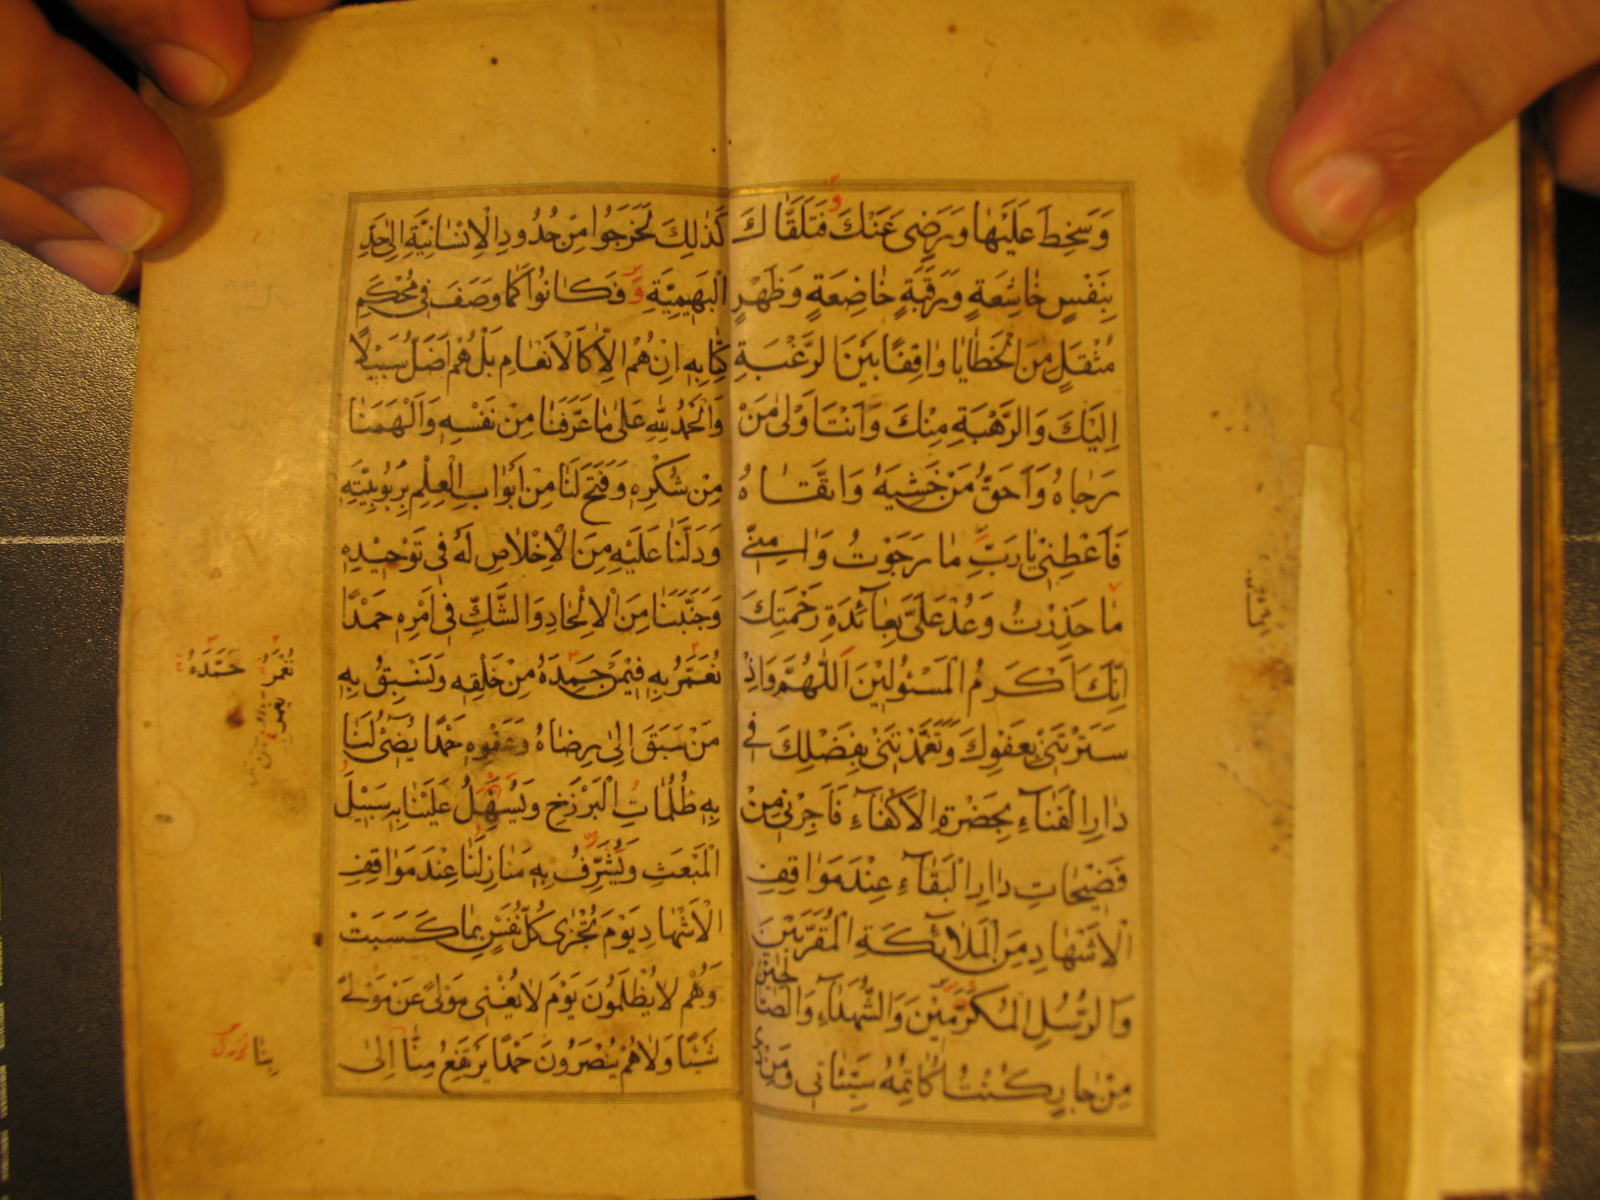 وَسَخِطَ عَلَيْهَا وَيَرَضِىَ عَنْكَ فَتَلَقَّاكَ
بِنَفْسٍ خَاشِعَةٍ وَرَقَبَةٍ خَاضِعَةٍ وَظَهْرٍ
مُثْقَلٍ مِنَ الْخَطَايَا وَاقِفًا بَيْنَ الرَّغْبَةِ
اِلَيْكَ وَالرَّهْبَةِ مِنْكَ وَاَنْتَ اَوْلٰى مَنْ
رَجَاهُ وَاَحَقُّ مَنْ خَشِيَهُ وَاتَّقَاهُ
فَاَعْطِنِيْ يَا رَبِّ مَا رَجَوْتُ وَاٰمِنِّيْ
مَا حَذِرْتُ وَعُدْ عَلَيَّ بِعَائِدَةِ رَحْمَتِكَ
اِنَّكَ اَكْرَمُ الْمَسْئُولِيْنَ اَللّٰهُمَّ وَاِذْ
سَتَرْتَنِيْ بِعَفْوِكَ وَتَغَمَّدْتَنِيْ بِفَضْلِكَ فِي
دَارِ الْفَنَاءِ بِحَضْرَةِ الْاَكْفَاءِ فَاَجِرْنِيْ مِنْ
فَضِيْحَاتِ دَارِ الْبَقَاءِ عِنْدَ مَوَاقِفِ
الْاَشْهَادِ مِنَ الْمَلَائِكَةِ الْمُقَرَّبِيْنَ
وَالرُّسُلِ الْمُكَرَّمِيْنَ وَالشُّهَدَاءِ وَالصَّالِحِيْنَ
مِنْ جَارٍ كُنْتُ اُكَاتِمُهُ سَيِّئَاتِيْ وَمِنْ ذِي
كَذٰلِكَ لَخَرَجُوا مِنْ حُدُودِ الْاِنْسَانِيَّةِ اِلٰى حَدِّ
الْبَهِيْمِيَّةِ وَ فَكَانُوا كَمَا وَصَفَ فِيْ مُحْكَمِ
كِتَابِهِ اِنْ هُمْ اِلَّا كَالْاَنْعَامِ بَلْ هُمْ اَضَلُّ سَبِيْلًا
وَالْحَمْدُ لِلّٰهِ عَلٰى مَا عَرَّفَنَا مِنْ نَفْسِهِ وَاَلْهَمَنَا
مِنْ شُكْرِهِ وَفَتَحَ لَنَا مِنْ اَبْوَابِ الْعِلْمِ بِرُبُوبِيَّتِهِ
وَدَلَّنَا عَلَيْهِ مِنَ الْاِخْلَاصِ لَهُ فِيْ تَوْحِيْدِهِ
وَجَنَّبَنَا مِنَ الْاِلْحَادِ وَالشَّكِّ فِيْ اَمْرِهِ حَمْدًا
نُعَمَّرُ بِهِ فِيْمَنْ حَمِدَهُ مِنْ خَلْقِهِ وَنَسْبِقُ بِهِ
نُعَمَّرُ حَمَّدَهُ
مَنْ سَبَقَ اِلٰى رِضَاهُ وَعَفْوِهِ حَمْدًا يُضِيْءُ لَنَا
بِهِ ظُلُمَاتِ الْبَرْزَخِ وَيُسَهِّلُ عَلَيْنَا بِهِ سَبِيْلَ
الْمَبْعَثِ وَيُشَرِّفُ بِهِ مَنَازِلَنَا عِنْدَ مَوَاقِفِ
الْاَشْهَادِ يَوْمَ تُجْزٰى كُلُّ نَفْسٍ بِمَا كَسَبَتْ
وَهُمْ لَا يُظْلَمُونَ يَوْمَ لَا يُغْنِيْ مَوْلًى عَنْ مَوْلًى
شَيْئًا وَلَا هُمْ يُنْصَرُونَ حَمْدًا يَرْتَفِعُ مِنَّا اِلٰى